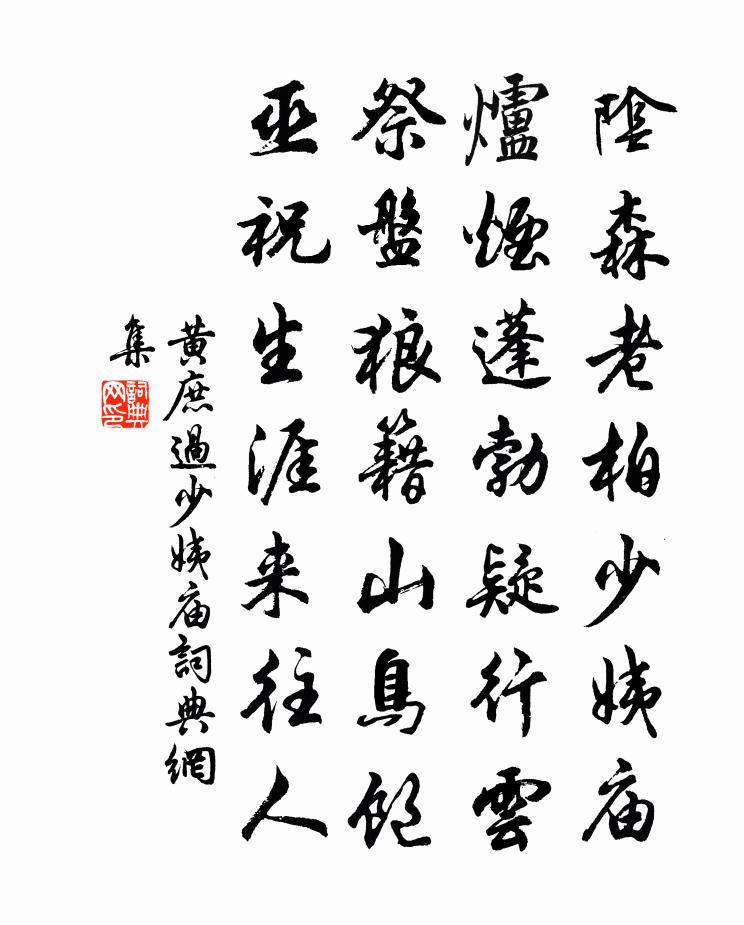 陰森老柏少姨庙
爐煙蓬勃疑行雲
祭盤狼籍山鳥飽
巫祝生涯来往人
黄庶過少姨庙詞典網
集
詞典网印